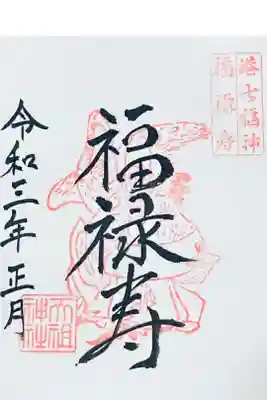 港七福神
福禄寿
福禄寿
令和三年 正月
天祖
神社